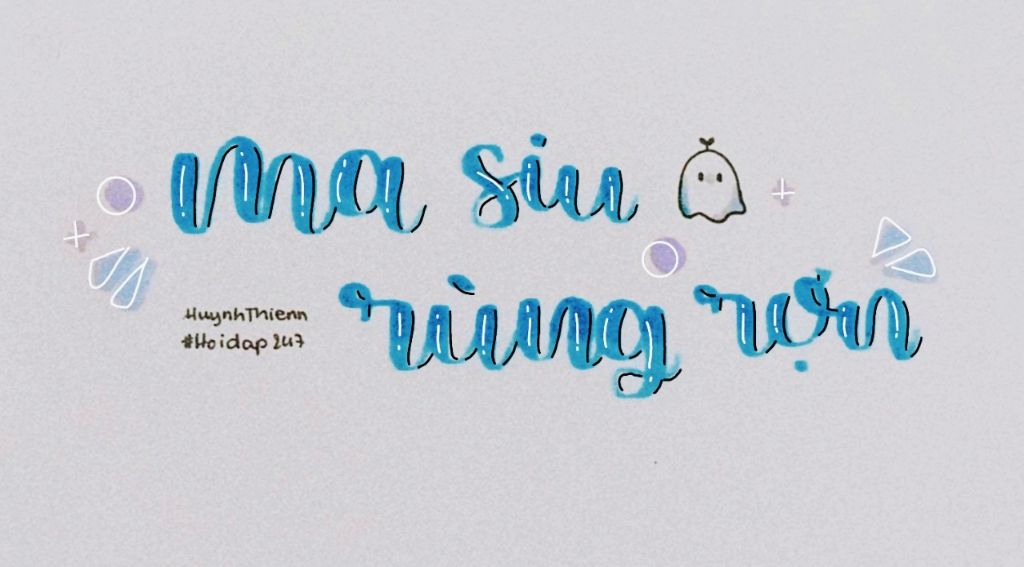 ma siu
rùng rợn
HuynhThienn
#Hoidap247